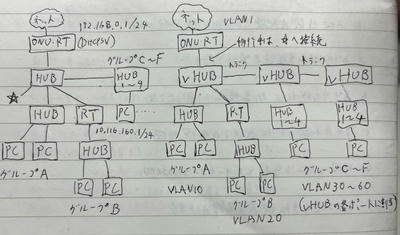 ネット
192.168.0.1/24
ONU-RT (DHCPSV)
グループC~F
HUB
HUB 1~4
☆
HUB RT PC
10.116.160.1/24
PC PC HUB
グループA
PC PC
グループB
ネット
VLAN1
ONU-RT
移行中は、☆へ接続
vHUB トランク vHUB トランク vHUB
HUB RT HUB 1~4 HUB 1~4
PC PC HUB PC PC
グループA
VLAN10
PC PC
グループB
VLAN20
グループC~F
VLAN30~60
(vHUBの各ポートに割当)